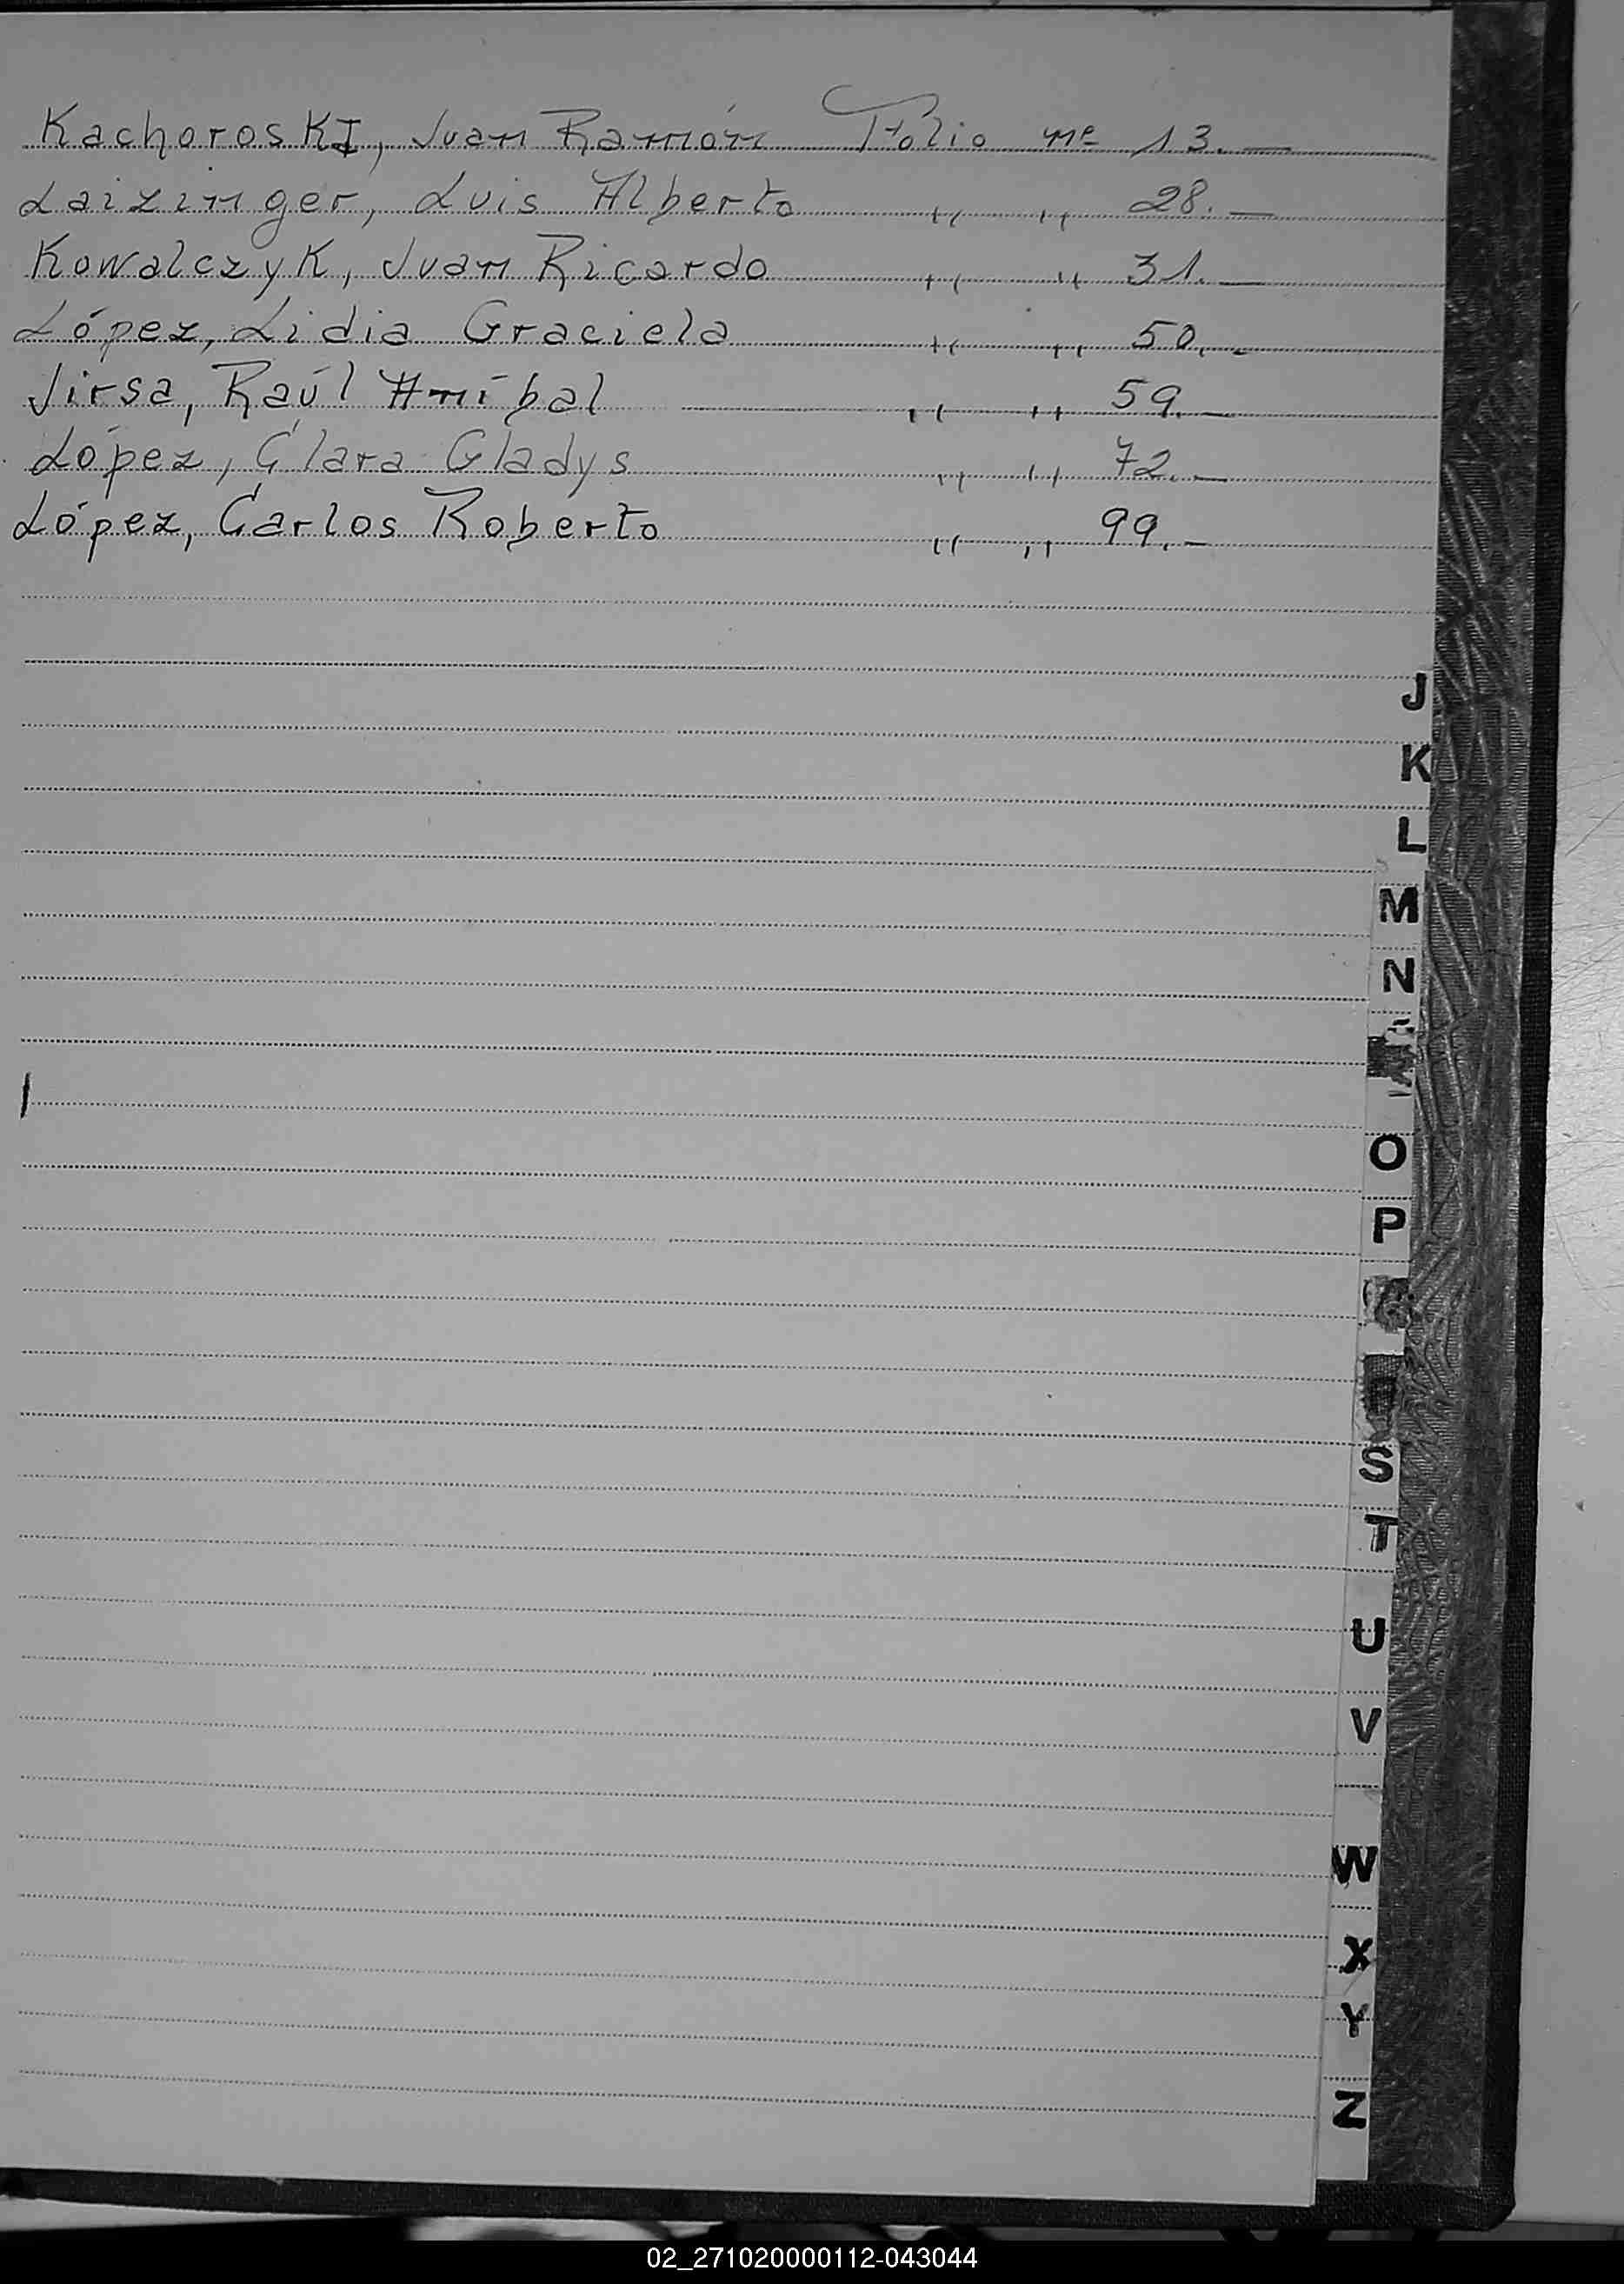 KachorosKI, Juan Ramón Folio nº 13.—
Laizinger, Luis Alberto " " 28.—
KowalczyK, Juan Ricardo " " 31.—
López, Lidia Graciela " " 50.—
Jirsa, Raúl Aníbal " " 59.—
López, Clara Gladys " " 72.—
López, Carlos Roberto " " 99.—
J
K
L
M
N
O
P
S
T
U
V
W
X
Y
Z
02_271020000112-043044